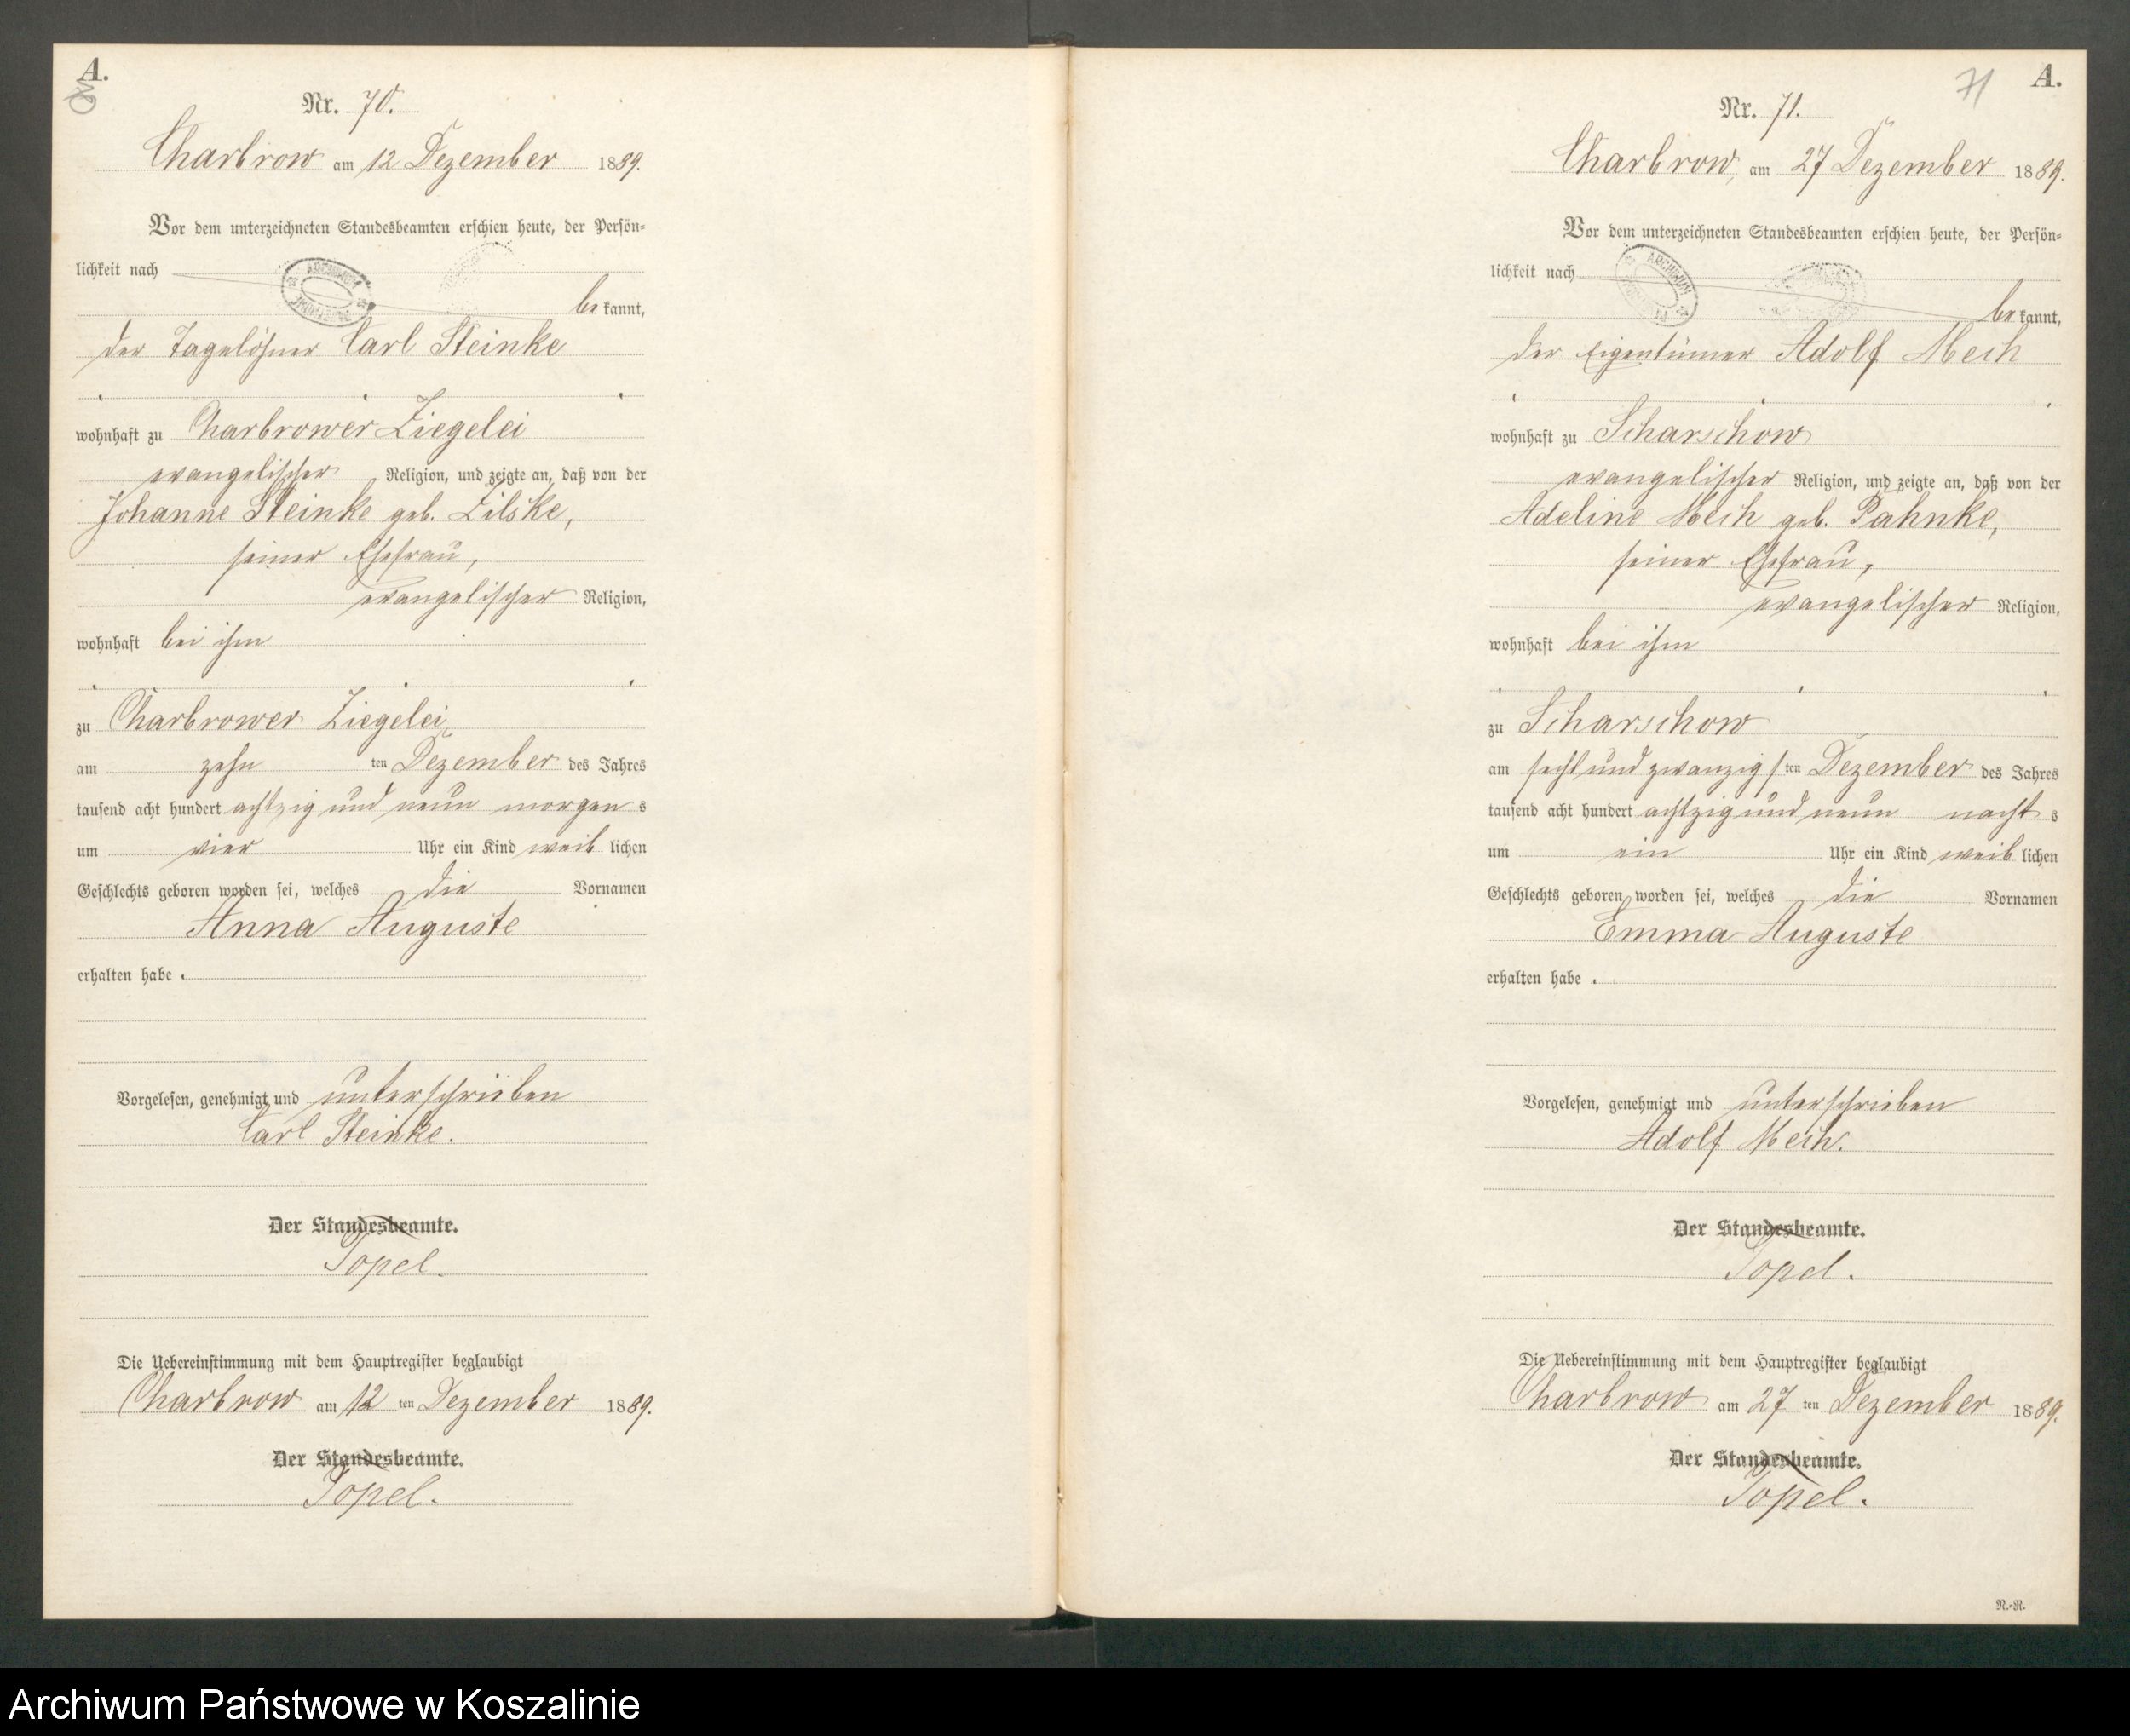 A.
Nr. 70.
Charbrow am 12 Dezember 1889.
Vor dem unterzeichneten Standesbeamten erschien heute, der Persön-
lichkeit nach
bekannt,
der Tagelöhner Carl Steinke
wohnhaft zu Charbrower Ziegelei
evangelischer Religion, und zeigte an, daß von der
Johanne Steinke geb. Zilske,
seiner Ehefrau,
evangelischer Religion,
wohnhaft bei ihm
zu Charbrower Ziegelei
am zehn ten Dezember des Jahres
tausend acht hundert achtzig und neun morgens
um vier Uhr ein Kind weiblichen
Geschlechts geboren worden sei, welches die Vornamen
Anna Auguste
erhalten habe.
Vorgelesen, genehmigt und unterschrieben
Carl Steinke.
Der Standesbeamte.
Topel.
Die Uebereinstimmung mit dem Hauptregister beglaubigt
Charbrow am 12 ten Dezember 1889.
Der Standesbeamte.
Topel.
71 A.
Nr. 71.
Charbrow, am 27 Dezember 1889.
Vor dem unterzeichneten Standesbeamten erschien heute, der Persön-
lichkeit nach
bekannt,
der Eigentümer Adolf Mech
wohnhaft zu Scharschow
evangelischer Religion, und zeigte an, daß von der
Adeline Mech geb. Pahnke,
seiner Ehefrau,
evangelischer Religion,
wohnhaft bei ihm
zu Scharschow
am sechs und zwanzigsten Dezember des Jahres
tausend acht hundert achtzig und neun nachts
um ein Uhr ein Kind weiblichen
Geschlechts geboren worden sei, welches die Vornamen
Emma Auguste
erhalten habe.
Vorgelesen, genehmigt und unterschrieben
Adolf Mech.
Der Standesbeamte.
Topel.
Die Uebereinstimmung mit dem Hauptregister beglaubigt
Charbrow am 27 ten Dezember 1889.
Der Standesbeamte.
Topel.
N.-R.
Archiwum Państwowe w Koszalinie